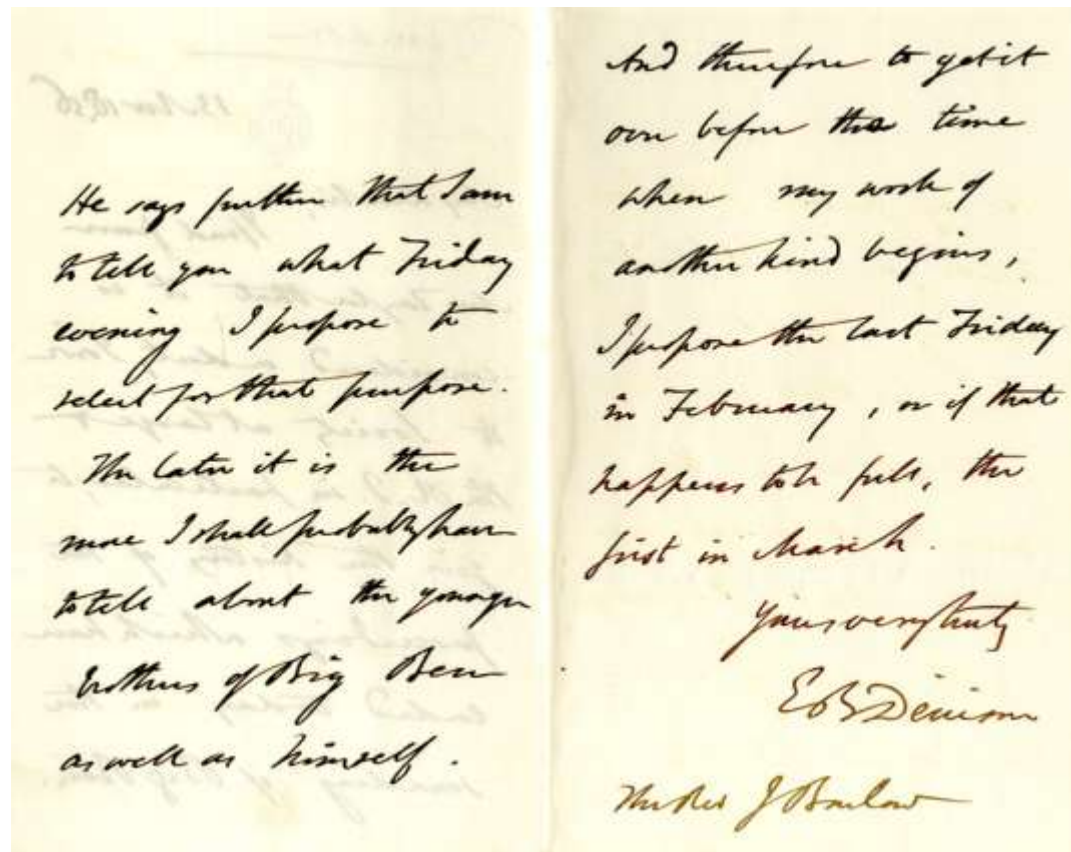 He says further that I am
to tell you what Friday
evening I propose to
select for that purpose.
The later it is the
more I shall probably have
to tell about the younger
brothers of Big Ben
as well as himself.
And therefore to get it
over before the time
when my work of
another kind begins,
I propose the last Friday
in February, or if that
happens to be full, the
first in March.
Yours very truly
E B Denison
The Rev J Barlow